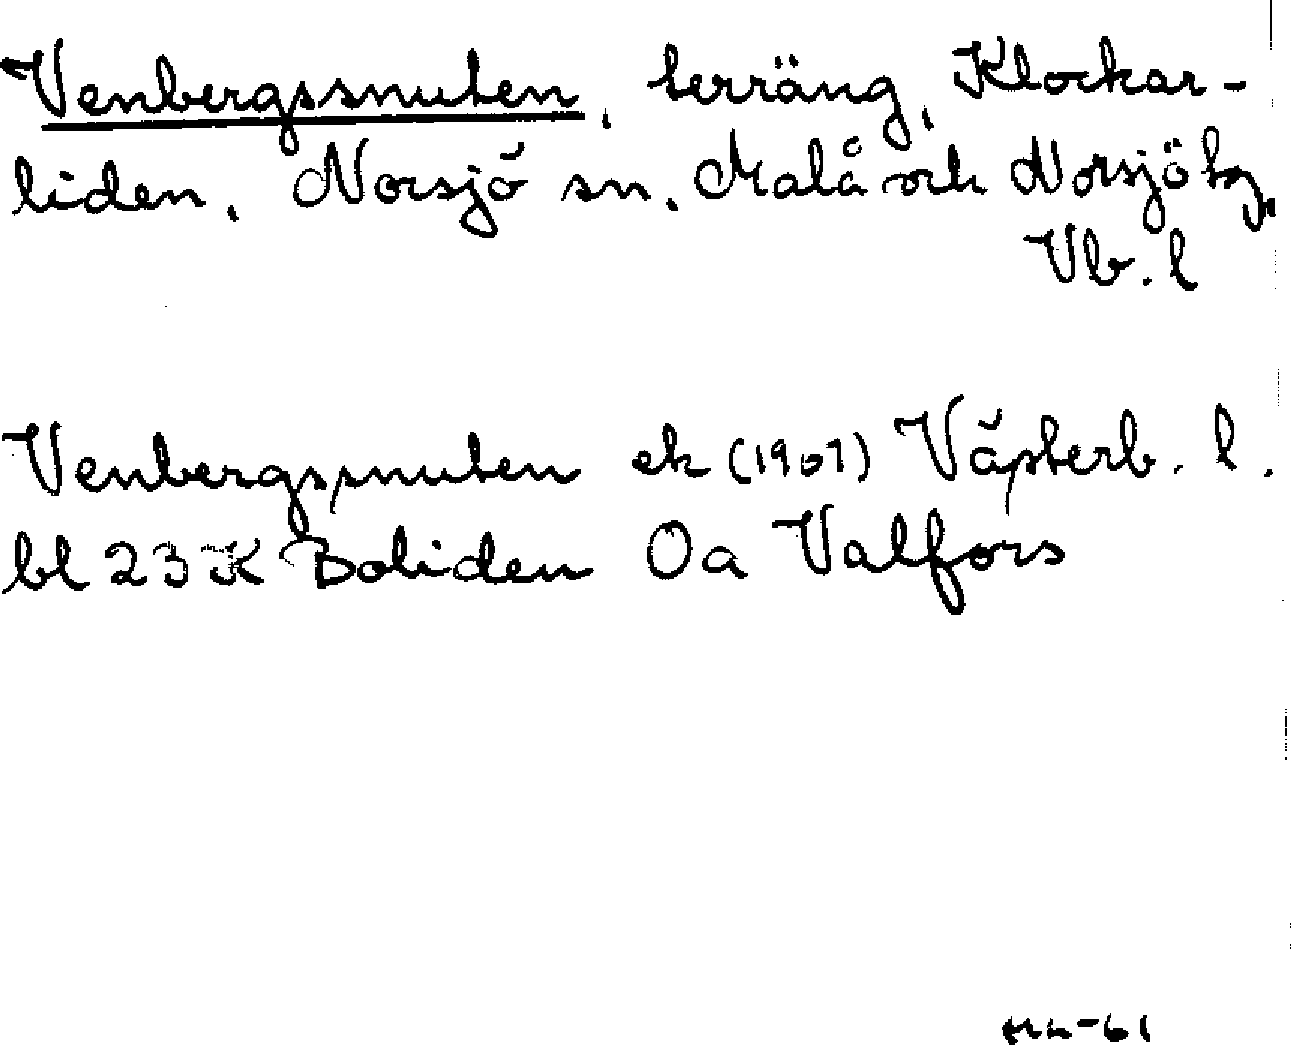 Venbergssnuten, terräng, Klockar-
liden, Norsjö sn. Malå och Norsjö tg,
Vb. l
Venbergssnuten ek (1907) Västerb. l.
bl 23 K Boliden Oa Valfors
-61